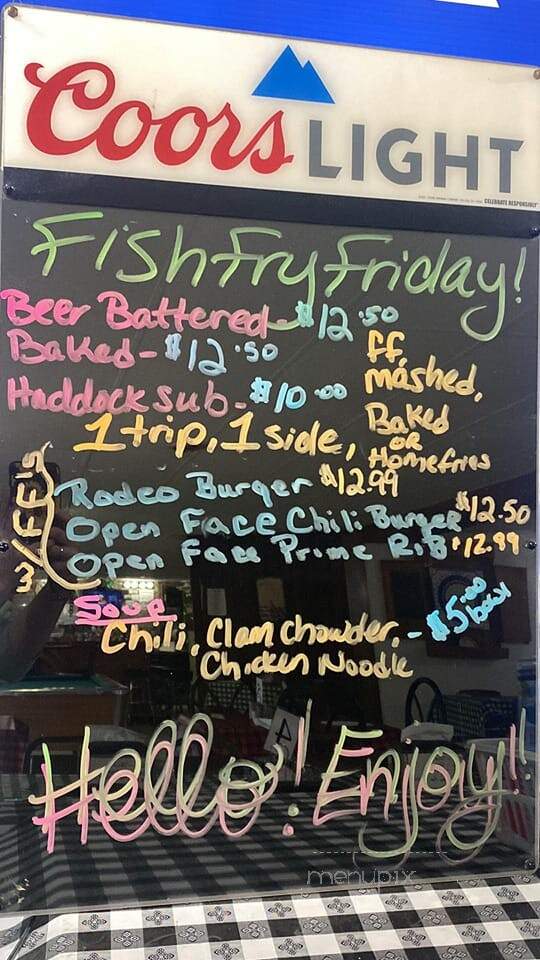 Coors LIGHT
CELEBRATE RESPONSIBLY
Fish Fry Friday!
Beer Battered - $12.50
Baked - $12.50
Haddock sub - $10.00
1 trip, 1 side,
ff,
mashed,
Baked
OR
Homefries
w/FF's
Rodeo Burger $12.99
Open Face Chili Burger $12.50
Open Face Prime Rib $12.99
Soup
Chili, Clam Chowder, - $5.00 bowl
Chicken Noodle
Hello! Enjoy!!
4
menupix